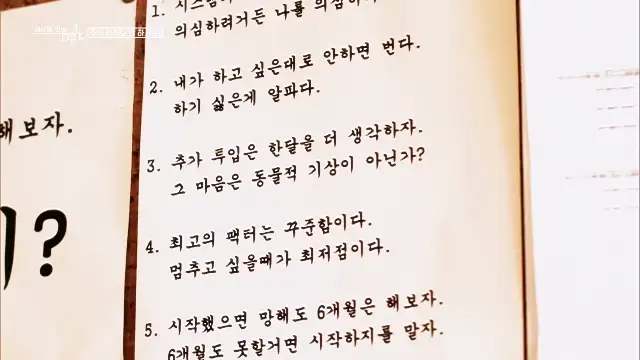 해보자.
?
1. 시스템
의심하려거든 나를 의심하
2. 내가 하고 싶은대로 안하면 번다.
하기 싫은게 알파다.
3. 추가 투입은 한달을 더 생각하자.
그 마음은 동물적 기상이 아닌가?
4. 최고의 팩터는 꾸준함이다.
멈추고 싶을때가 최저점이다.
5. 시작했으면 망해도 6개월은 해보자.
6개월도 못할거면 시작하지를 말자.